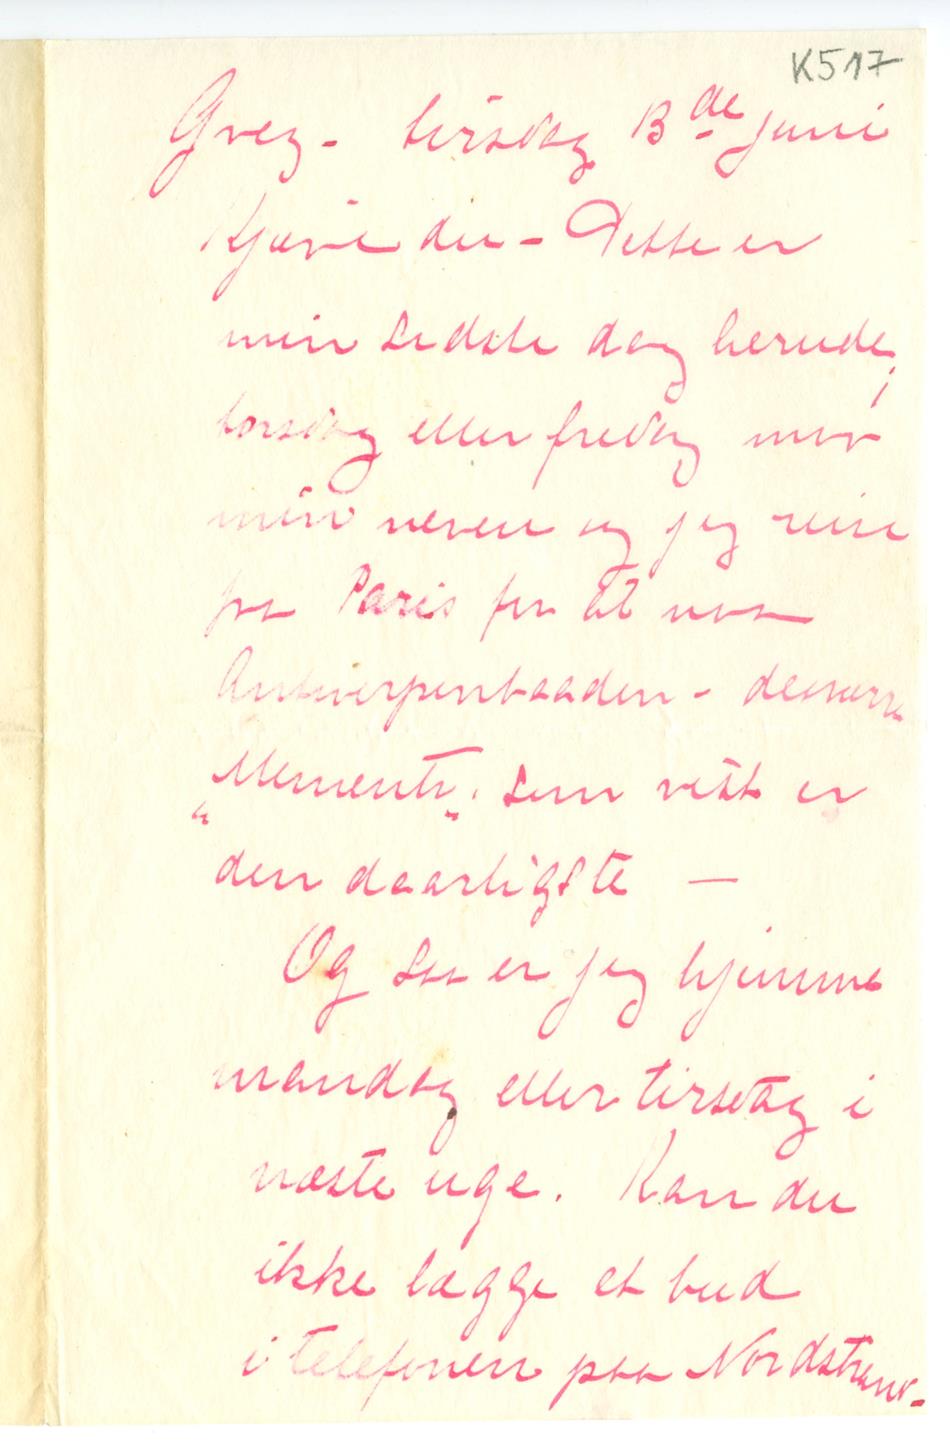 K517
Grez - tirsdag 13de juni
Kjære du - Dette er
min sidste dag herude,
torsdag eller fredag maa
min neveu og jeg reise
fra Paris for at naa
Antwerpenbaaden - desværre
"Memento", som visst er
den daarligste —
Og saa er jeg hjemme
mandag eller tirsdag i
næste uge. Kan du
ikke lægge et bud
i telefonen paa Nordstrand.